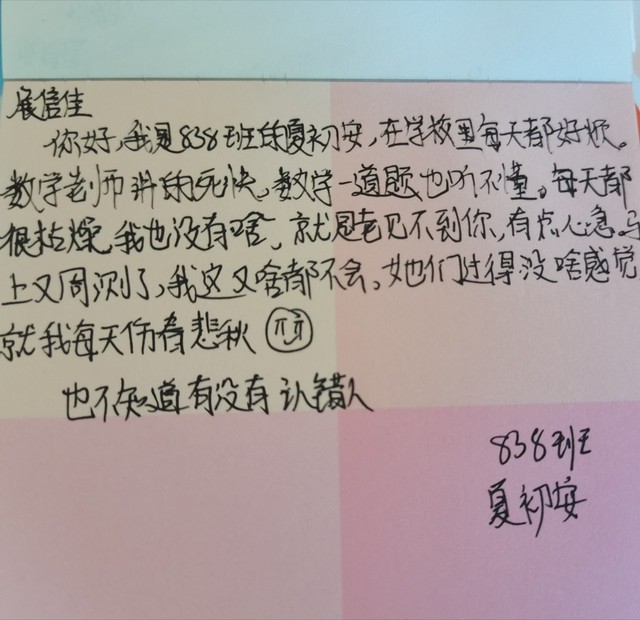 展信佳
你好,我是838班的夏初安,在学校里每天都好烦。
数学老师讲的死快,数学一道题也听不懂。每天都
很枯燥,我也没有啥,就是老见不到你,有点心急,马
上又周测了,我这又啥都不会。她们过得没啥感觉
就我每天伤春悲秋
也不知道有没有认错人
838班
夏初安